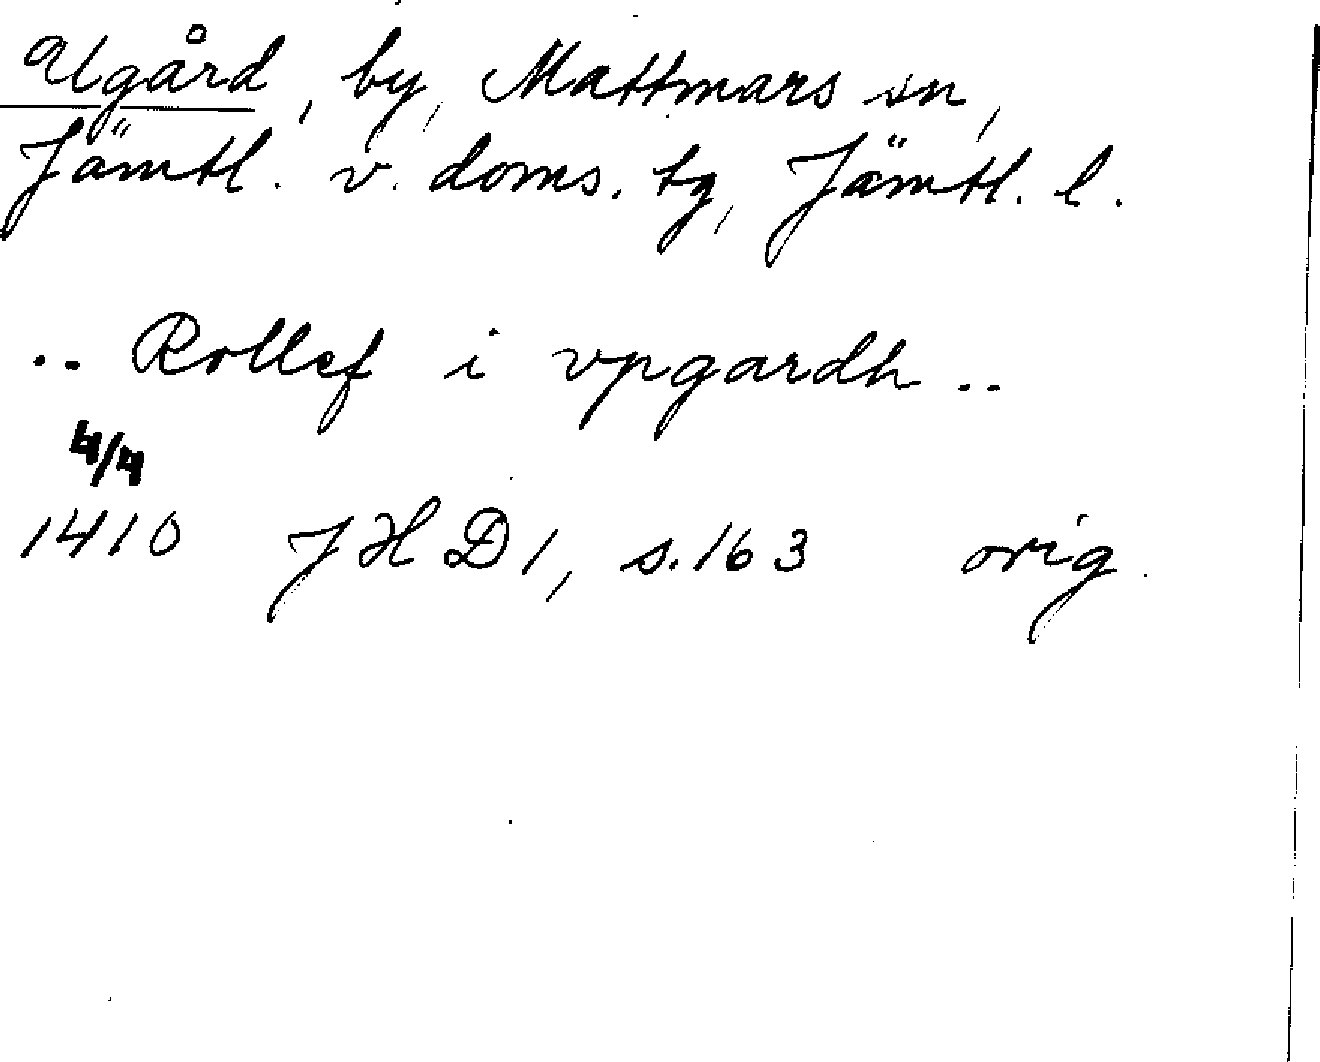 Ugård, by, Mattmars sn,
Jämtl. v. doms. tg, Jämtl. l.
.. Rollef i vpgardh ..
4/4
1410 JHD 1, s. 163 orig.